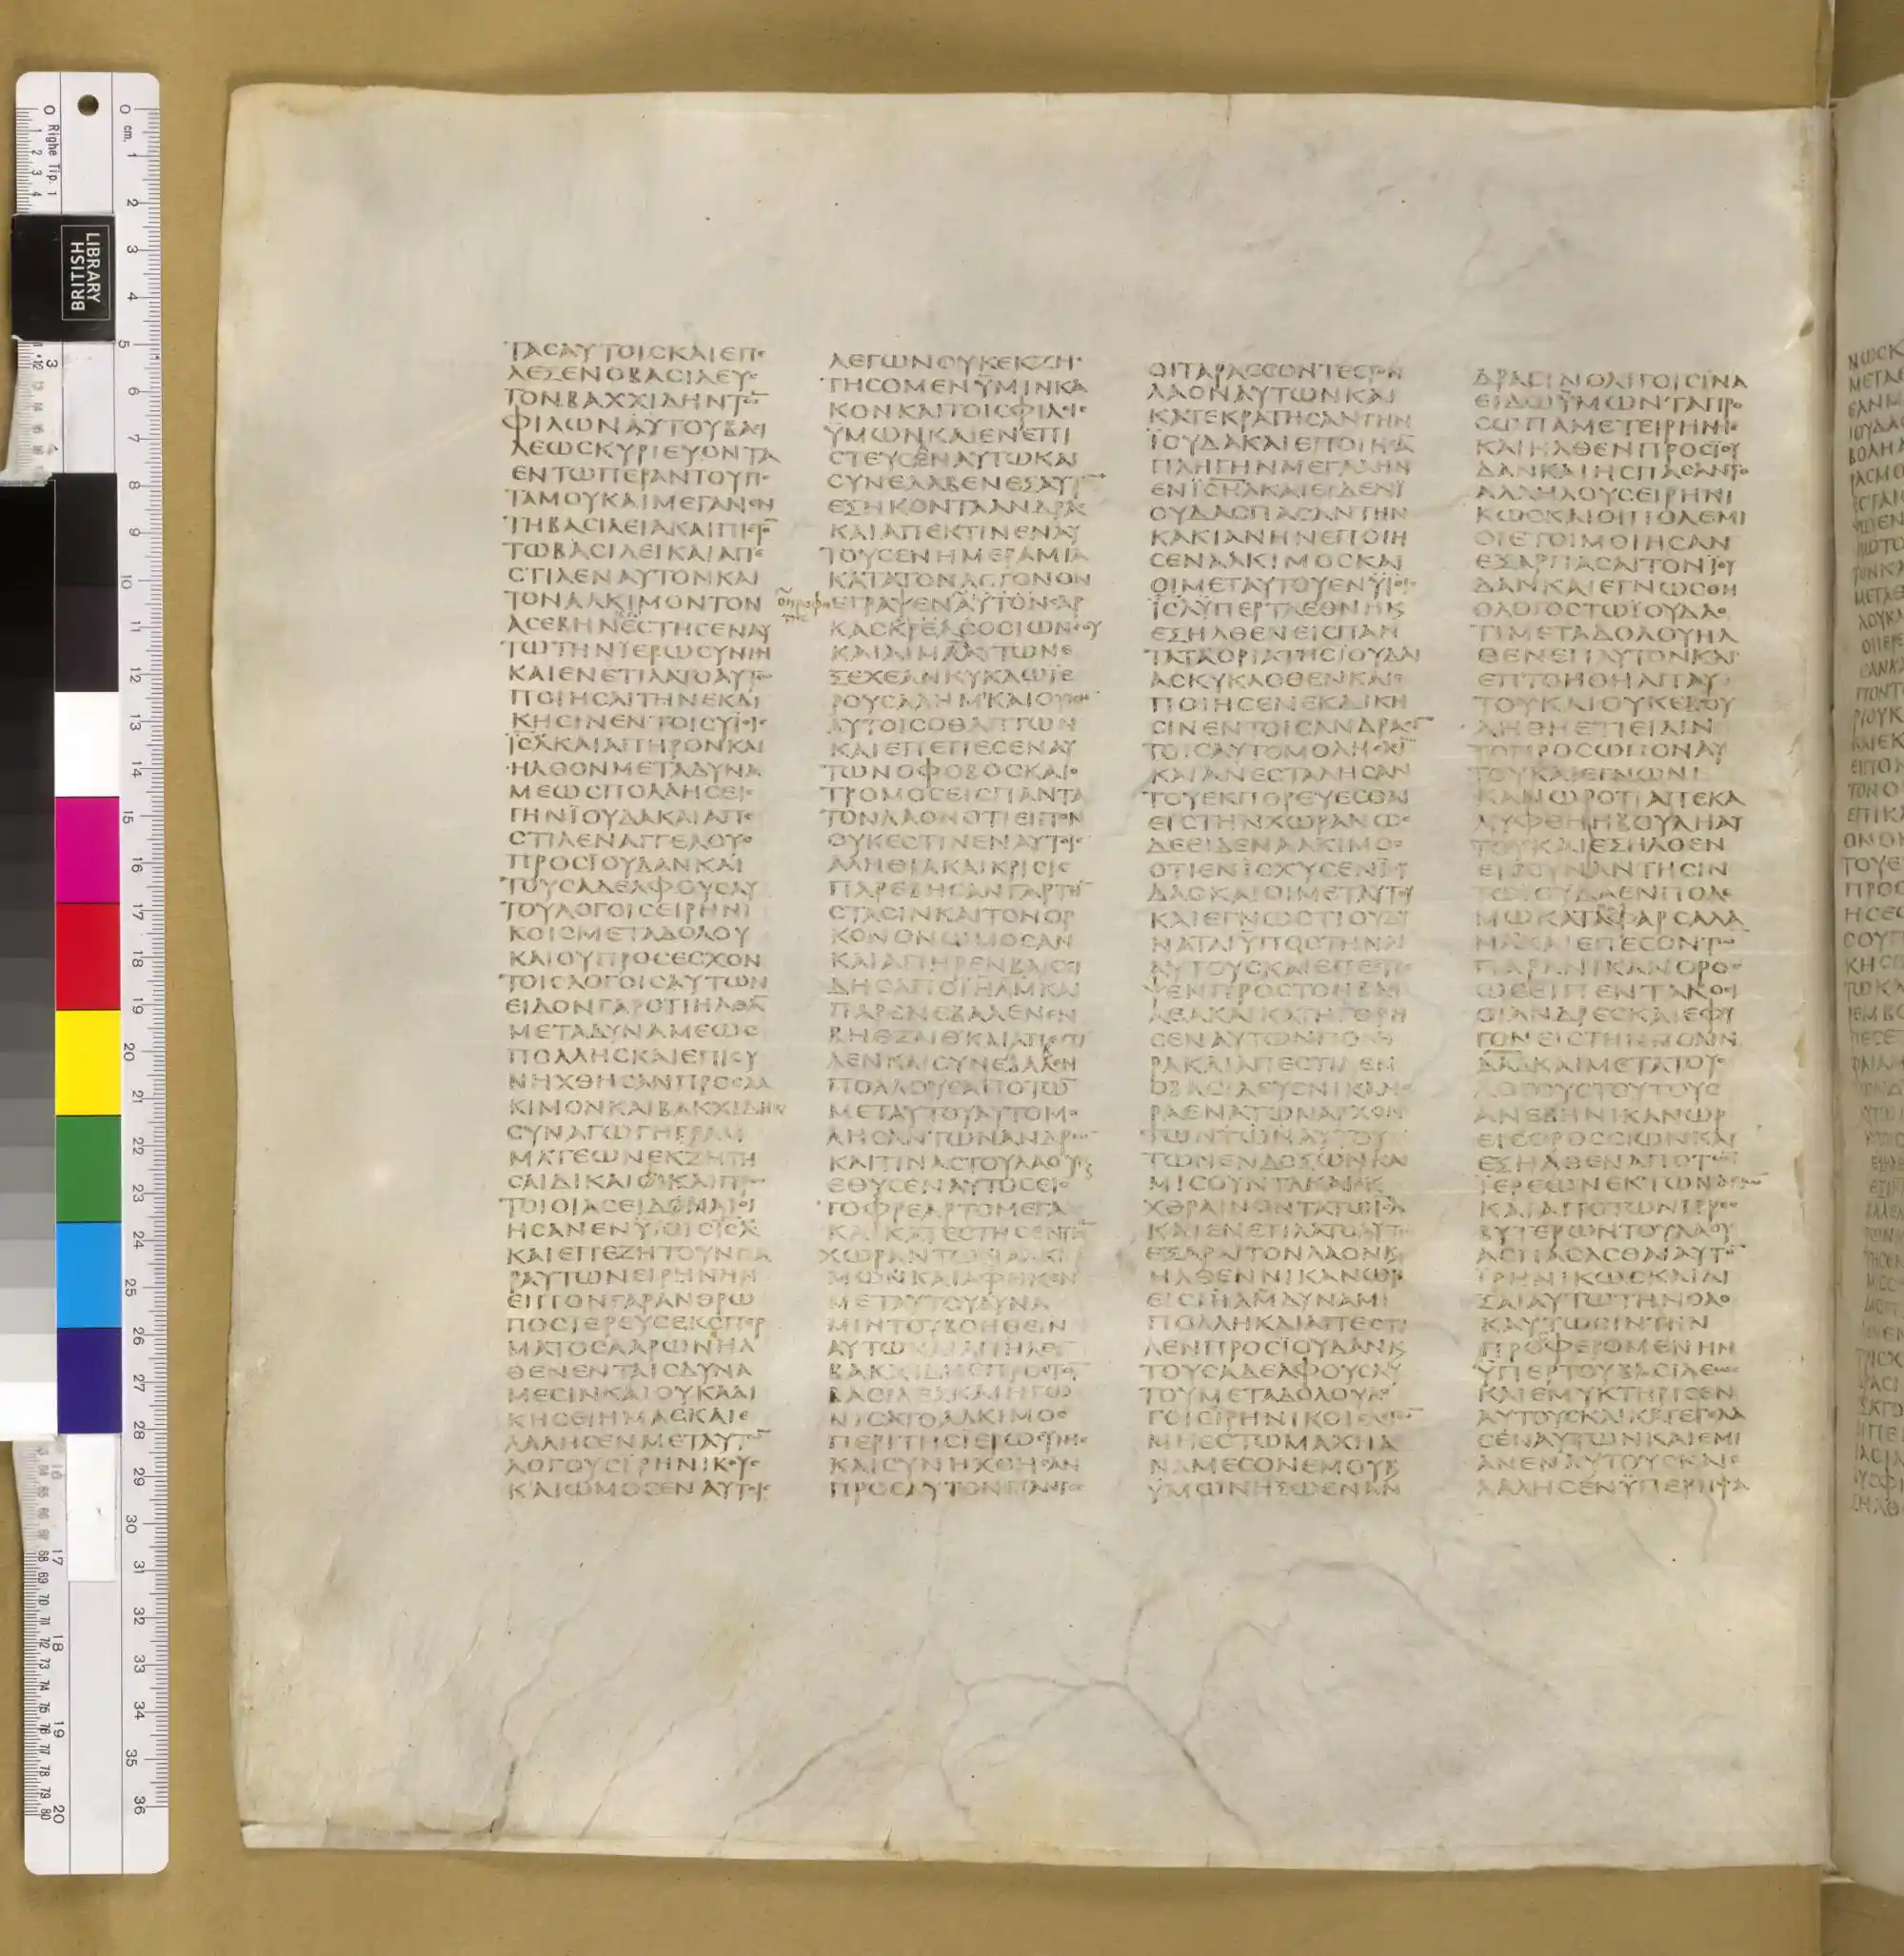 ΤΑCΑΥΤΟΙCΚΑΙΕΠΕ
ΛΕΞΕΝΟΒΑCΙΛΕΥC
ΤΟΝΒΑΧΧΙΔΗΝΤΩ̅
ΦΙΛΩΝΑΥΤΟΥΒΑCΙ
ΛΕΩCΚΥΡΙΕΥΟΝΤΑ
ΕΝΤΩΠΕΡΑΝΤΟΥΠΟ
ΤΑΜΟΥΚΑΙΜΕΓΑΝΕΝ
ΤΗΒΑCΙΛΕΙΑΚΑΙΠΙCΤΟ̅
ΤΩΒΑCΙΛΕΙΚΑΙΑΠΕ
CΤΙΛΕΝΑΥΤΟΝΚΑΙ
ΤΟΝΑΛΚΙΜΟΝΤΟΝ
ΑCΕΒΗΝΕCΤΗCΕΝΑΥ
ΤΩΤΗΝΙΕΡΩCΥΝΗΝ
ΚΑΙΕΝΕΤΙΛΑΤΟΑΥΤΩ
ΠΟΙΗCΑΙΤΗΝΕΚΔΙ
ΚΗCΙΝΕΝΤΟΙCΥΪΟΙC
ΪCΛΚΑΙΑΠΗΡΟΝΚΑΙ
ΗΛΘΟΝΜΕΤΑΔΥΝΑ
ΜΕΩCΠΟΛΛΗCΕΙC
ΓΗΝΪΟΥΔΑΚΑΙΑΠΕ
CΤΙΛΕΝΑΓΓΕΛΟΥC
ΠΡΟCΪΟΥΔΑΝΚΑΙ
ΤΟΥCΑΔΕΛΦΟΥCΑΥ
ΤΟΥΛΟΓΟΙCΕΙΡΗΝΙ
ΚΟΙCΜΕΤΑΔΟΛΟΥ
ΚΑΙΟΥΠΡΟCΕCΧΟΝ
ΤΟΙCΛΟΓΟΙCΑΥΤΩΝ
ΕΙΔΟΝΓΑΡΟΤΙΗΛΘΑ̅
ΜΕΤΑΔΥΝΑΜΕΩC
ΠΟΛΛΗCΚΑΙΕΠΙCΥ
ΝΗΧΘΗCΑΝΠΡΟCΑΛ
ΚΙΜΟΝΚΑΙΒΑΚΧΙΔΗΝ
CΥΝΑΓΩΓΗΓΡΑΜ
ΜΑΤΕΩΝΕΚΖΗΤΗ
CΑΙΔΙΚΑΙΑΚΑΙΠΡΩ
ΤΟΙΟΙΑCΕΙΔΑΙΟΙ
ΗCΑΝΕΝΥΪΟΙCΪCΛ
ΚΑΙΕΠΕΖΗΤΟΥΝΠΑ
ΡΑΥΤΩΝΕΙΡΗΝΗΝ
ΕΙΠΟΝΓΑΡΑΝΘΡΩ
ΠΟCΙΕΡΕΥCΕΚCΠΕΡ
ΜΑΤΟCΑΑΡΩΝΗΛ
ΘΕΝΕΝΤΑΙCΔΥΝΑ
ΜΕCΙΝΚΑΙΟΥΚΑΔΙ
ΚΗCΕΙΗΜΑCΚΑΙΕ
ΛΑΛΗCΕΝΜΕΤΑΥΤΩ̅
ΛΟΓΟΥCΙΡΗΝΙΚΟΥC
ΚΑΙΩΜΟCΕΝΑΥΤΟΙC
ΛΕΓΩΝΟΥΚΕΚΖΗ
ΤΗCΟΜΕΝΫΜΙΝΚΑ
ΚΟΝΚΑΙΤΟΙCΦΙΛΟΙC
ΫΜΩΝΚΑΙΕΝΕΠΙ
CΤΕΥCΕΝΑΥΤΩΚΑΙ
CΥΝΕΛΑΒΕΝΕΞΑΥΤΩ̅
ΕΞΗΚΟΝΤΑΑΝΔΡΑC
ΚΑΙΑΠΕΚΤΙΝΕΝΑΥ
ΤΟΥCΕΝΗΜΕΡΑΜΙΑ
ΚΑΤΑΤΟΝΛΟΓΟΝΟΝ
ΕΓΡΑΨΕΝΑΥΤΟΝCΑΡ
ΚΑCΚΡΕΑCΟCΙΩΝCΟΥ
ΚΑΙΑΙΜΑΑΥΤΩΝΕ
ΞΕΧΕΑΝΚΥΚΛΩΪΕ
ΡΟΥCΑΛΗΜΚΑΙΟΥΚΗΝ
ΑΥΤΟΙCΟΘΑΠΤΩΝ
ΚΑΙΕΠΕΠΕCΕΝΑΥ
ΤΩΝΟΦΟΒΟCΚΑΙΟ
ΤΡΟΜΟCΕΙCΠΑΝΤΑ
ΤΟΝΛΑΟΝΟΤΙΕΙΠΟΝ
ΟΥΚΕCΤΙΝΕΝΑΥΤΟΙC
ΑΛΗΘΙΑΚΑΙΚΡΙCΙC
ΠΑΡΕΒΗCΑΝΓΑΡΤΗ̅
CΤΑCΙΝΚΑΙΤΟΝΟΡ
ΚΟΝΟΝΩΜΟCΑΝ
ΚΑΙΑΠΗΡΕΝΒΑΚΧΙ
ΔΗCΑΠΟΪΗΛΜΚΑΙ
ΠΑΡΕΝΕΒΑΛΕΝΕΝ
ΒΗΘΖΑΙΘΚΑΙΑΠΕCΤΙ
ΛΕΝΚΑΙCΥΝΕΛΑΒΕΝ
ΠΟΛΛΟΥCΑΠΟΤΩ̅
ΜΕΤΑΥΤΟΥΑΥΤΟΜΟ
ΛΗCΑΝΤΩΝΑΝΔΡΩΝ
ΚΑΙΤΙΝΑCΤΟΥΛΑΟΥΚ
ΕΘΥCΕΝΑΥΤΟCΕΙC
ΤΟΦΡΕΑΡΤΟΜΕΓΑ
ΚΑΙΚΑΤΕCΤΗCΕΝΤΗ̅
ΧΩΡΑΝΤΩΑΛΚΙ
ΜΩΚΑΙΑΦΗΚΕΝ
ΜΕΤΑΥΤΟΥΔΥΝΑ
ΜΙΝΤΟΥΒΟΗΘΕΙΝ
ΑΥΤΩΚΑΙΑΠΗΛΘΕ
ΒΑΚΧΙΔΗCΠΡΟCΤΟ̅
ΒΑCΙΛΕΑΚΑΙΗΓΩ
ΝΙCΑΤΟΑΛΚΙΜΟC
ΠΕΡΙΤΗCΙΕΡΩCΥΝΗC
ΚΑΙCΥΝΗΧΘΗCΑΝ
ΠΡΟCΑΥΤΟΝΠΑΝΤΕC
ΟΙΤΑΡΑCCΟΝΤΕCΤΟΝ
ΛΑΟΝΑΥΤΩΝΚΑΙ
ΚΑΤΕΚΡΑΤΗCΑΝΤΗΝ
ΪΟΥΔΑΚΑΙΕΠΟΙΗCΑ̅
ΠΛΗΓΗΝΜΕΓΑΛΗΝ
ΕΝΪCΗΛΚΑΙΕΙΔΕΝΪ
ΟΥΔΑCΠΑCΑΝΤΗΝ
ΚΑΚΙΑΝΗΝΕΠΟΙΗ
CΕΝΑΛΚΙΜΟCΚΑΙ
ΟΙΜΕΤΑΥΤΟΥΕΝΫΪΟΙC
ΪCΛΫΠΕΡΤΑΕΘΝΗΚ
ΕΞΗΛΘΕΝΕΙCΠΑΝ
ΤΑΤΑΟΡΙΑΤΗCΪΟΥΔΑΙ
ΑCΚΥΚΛΟΘΕΝΚΑΙΕ
ΠΟΙΗCΕΝΕΚΔΙΚΗ
CΙΝΕΝΤΟΙCΑΝΔΡΑCΙ̅
ΤΟΙCΑΥΤΟΜΟΛΗCΑCΙ̅
ΚΑΙΑΝΕCΤΑΛΗCΑΝ
ΤΟΥΕΚΠΟΡΕΥΕCΘΑΙ
ΕΙCΤΗΝΧΩΡΑΝΩC
ΔΕΕΙΔΕΝΑΛΚΙΜΟC
ΟΤΙΕΝΙCΧΥCΕΝΪΟΥ
ΔΑCΚΑΙΟΙΜΕΤΑΥΤΟΥ
ΚΑΙΕΓΝΩΟΤΙΟΥΔΥ
ΝΑΤΑΙΫΠΟCΤΗΝΑΙ
ΑΥΤΟΥCΚΑΙΕΠΕCΤΡΕ
ΨΕΝΠΡΟCΤΟΝΒΑCΙ
ΛΕΑΚΑΙΚΑΤΗΓΟΡΗ
CΕΝΑΥΤΩΝΠΟΝΗ
ΡΑΚΑΙΑΠΕCΤΙΛΕΝ
ΟΒΑCΙΛΕΥCΝΙΚΑΝΟ
ΡΑΕΝΑΤΩΝΑΡΧΟΝ
ΤΩΝΤΩΝΑΥΤΟΥ
ΤΩΝΕΝΔΟΞΩΝΚΑΙ
ΜΙCΟΥΝΤΑΚΑΙΕΚ
ΧΘΡΑΙΝΟΝΤΑΤΩΙCΛ
ΚΑΙΕΝΕΤΙΛΑΤΟΑΥΤΩ
ΕΞΑΡΑΙΤΟΝΛΑΟΝΚ
ΗΛΘΕΝΝΙΚΑΝΩΡ
ΕΙCΪΗΛΜΔΥΝΑΜΙ
ΠΟΛΛΗΚΑΙΑΠΕCΤΙ
ΛΕΝΠΡΟCΪΟΥΔΑΝΚ
ΤΟΥCΑΔΕΛΦΟΥCΑΥ
ΤΟΥΜΕΤΑΔΟΛΟΥΛΟ
ΓΟΙCΙΡΗΝΙΚΟΙCΛΕΓΩ̅
ΜΗΕCΤΩΜΑΧΗΑ
ΝΑΜΕCΟΝΕΜΟΥΚ
ΫΜΩΝΗΞΩΕΝΑΝ
ΔΡΑCΙΝΟΛΙΓΟΙCΙΝΑ
ΕΙΔΩΫΜΩΝΤΑΠΡΟ
CΩΠΑΜΕΤΕΙΡΗΝΗC
ΚΑΙΗΛΘΕΝΠΡΟCΪΟΥ
ΔΑΝΚΑΙΗCΠΑCΑΝΤΟ
ΑΛΛΗΛΟΥCΕΙΡΗΝΙ
ΚΩCΚΑΙΟΙΠΟΛΕΜΙ
ΟΙΕΤΟΙΜΟΙΗCΑΝ
ΕΞΑΡΠΑCΑΙΤΟΝΪΟΥ
ΔΑΝΚΑΙΕΓΝΩCΘΗ
ΟΛΟΓΟCΤΩΪΟΥΔΑΟ
ΤΙΜΕΤΑΔΟΛΟΥΗΛ
ΘΕΝΕΠΑΥΤΟΝΚΑΙ
ΕΠΤΟΗΘΗΑΠΑΥ
ΤΟΥΚΑΙΟΥΚΕΒΟΥ
ΛΗΘΗΕΤΙΕΙΔΙΝ
ΤΟΠΡΟCΩΠΟΝΑΥ
ΤΟΥΚΑΙΕΓΝΩΝΙ
ΚΑΝΩΡΟΤΙΑΠΕΚΑ
ΛΥΦΘΗΗΒΟΥΛΗΑΥ
ΤΟΥΚΑΙΕΞΗΛΘΕΝ
ΕΙCCΥΝΑΝΤΗCΙΝ
ΤΩΪΟΥΔΑΕΝΠΟΛΕ
ΜΩΚΑΤΑΦΑΡCΑΛΑ
ΜΑΚΑΙΕΠΕCΟΝΤΩ̅
ΠΑΡΑΝΙΚΑΝΟΡΟC
ΩCΕΙΠΕΝΤΑΚΟCΙ
ΟΙΑΝΔΡΕCΚΑΙΕΦΥ
ΓΟΝΕΙCΤΗΝΠΟΛΙΝ
ΔΑΔΚΑΙΜΕΤΑΤΟΥC
ΛΟΓΟΥCΤΟΥΤΟΥC
ΑΝΕΒΗΝΙΚΑΝΩΡ
ΕΙCΟΡΟCCΙΩΝΚΑΙ
ΕΞΗΛΘΕΝΑΠΟΤΩ̅
ΪΕΡΕΩΝΕΚΤΩΝΑΓΙΩ̅
ΚΑΙΑΠΟΤΩΝΠΡΕC
ΒΥΤΕΡΩΝΤΟΥΛΑΟΥ
ΑCΠΑCΑCΘΑΙΑΥΤΟ̅
ΙΡΗΝΙΚΩCΚΑΙΔΙ
ΞΑΙΑΥΤΩΤΗΝΟΛΟ
ΚΑΥΤΩCΙΝΤΗΝ
ΠΡΟΦΕΡΟΜΕΝΗΝ
ΫΠΕΡΤΟΥΒΑCΙΛΕΩC
ΚΑΙΕΜΥΚΤΗΡΙCΕΝ
ΑΥΤΟΥCΚΑΙΚΑΤΕΓΕΛΑ
CΕΝΑΥΤΩΝΚΑΙΕΜΙ
ΑΝΕΝΑΥΤΟΥCΚΑΙΕ
ΛΑΛΗCΕΝΫΠΕΡΗΦΑ